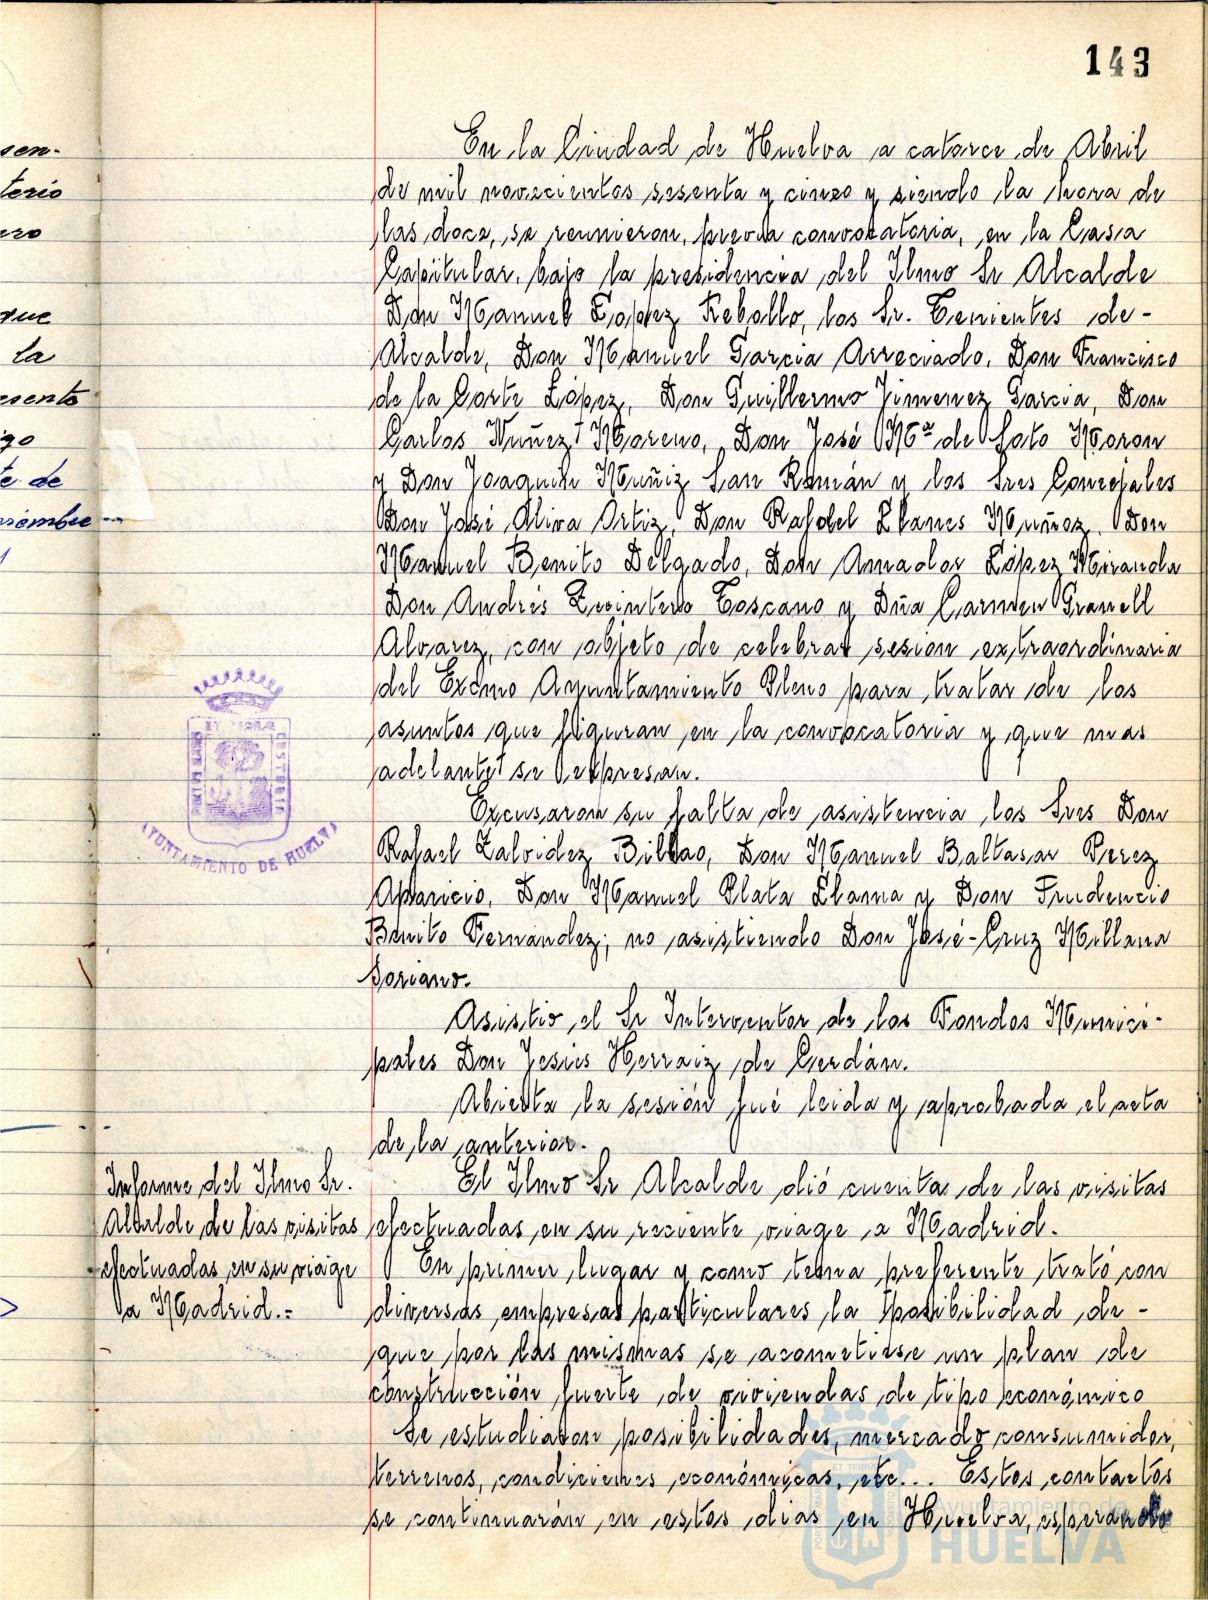 143
sen-
terio
ero
que
la
esento
igo
te de
oviembre
En la Ciudad de Huelva a catorce de Abril
de mil novecientos sesenta y cinco y siendo la hora de
las doce, se reunieron, previa convocatoria, en la Casa
Capitular, bajo la presidencia del Ilmo Sr Alcalde
Don Manuel López Rebollo, los Sr. Tenientes de-
Alcalde, Don Manuel Garcia Arreciado, Don Francisco
de la Corte López, Don Guillermo Jimenez Garcia, Don
Carlos Nuñez Moreno, Don José Mª de Soto Moron
y Don Joaquin Muñiz San Román y los Sres Concejales
Don José Oliva Ortiz, Don Rafael Llanes Muñoz, Don
Manuel Benito Delgado, Don Amador López Miranda
Don Andrés Quintero Toscano y Dña Carmen Granell
Alvarez, con objeto de celebrar sesion extraordinaria
del Excmo Ayuntamiento Pleno para tratar de los
asuntos que figuran en la convocatoria y que mas
adelante se expresan.
Excusaron su falta de asistencia los Sres Don
Rafael Zalvidez Bilbao, Don Manuel Baltasar Perez
Aparicio, Don Manuel Plata Llama y Don Prudencio
Benito Fernández; no asistiendo Don José-Cruz Millana
Soriano.
Asistio el Sr Interventor de los Fondos Munici-
pales Don Jesús Herraiz de Cerdán.
Abierta la sesión fué leida y aprobada el acta
de la anterior.
Informe del Ilmo Sr.
Alcalde de las visitas
efectuadas en su viage
a Madrid.-
El Ilmo Sr Alcalde dió cuenta de las visitas
efectuadas en su reciente viage a Madrid.
En primer lugar y como tema preferente trató con
diversas empresas particulares la posibilidad de-
que por las mismas se acometiese un plan de
construcción fuerte de viviendas de tipo económico
Se estudiaron posibilidades, mercado consumidor,
terrenos, condiciones económicas, etc... Estos contactos
se continuarán en estos dias en Huelva, esperando
AYUNTAMIENTO DE HUELVA
Ayuntamiento de
HUELVA